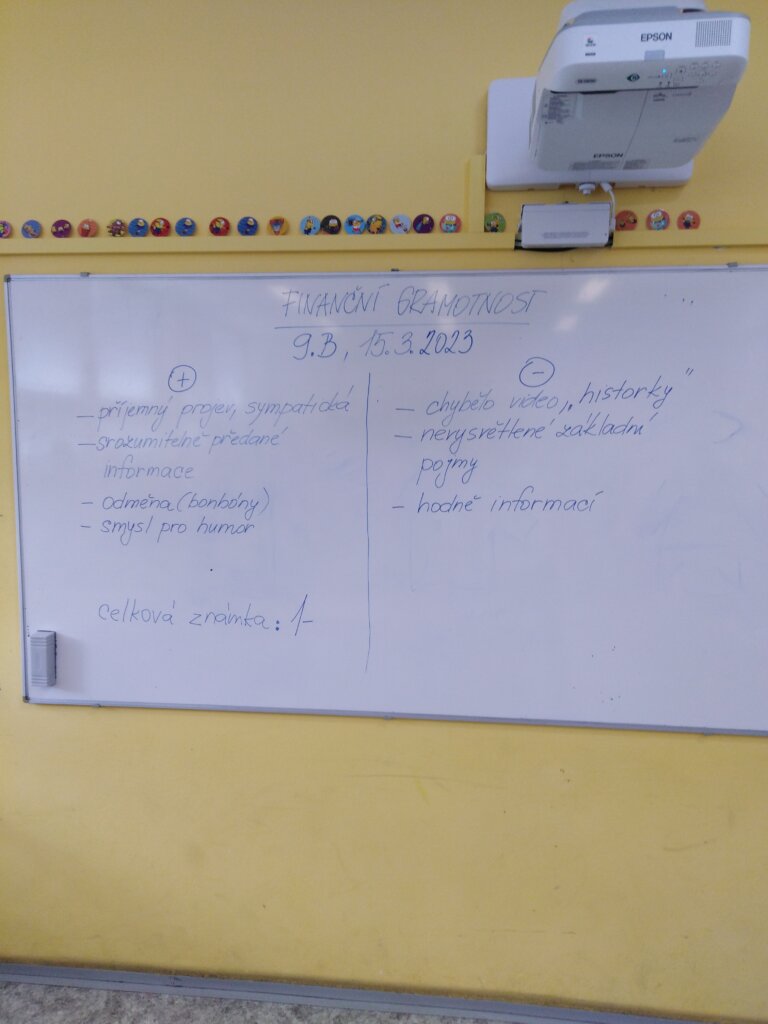 EPSON
EPSON
FINANČNÍ GRAMOTNOST
9.B, 15.3.2023
+
– příjemný projev, sympatická
– srozumitelně předané
informace
– odměna (bonbóny)
– smysl pro humor
celková známka: 1-
–
– chybělo video, „historky"
– nevysvětlené základní
pojmy
– hodně informací